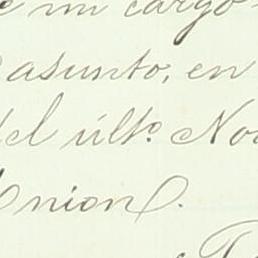 e mi cargo
asunto, en
del últº. No
Union.